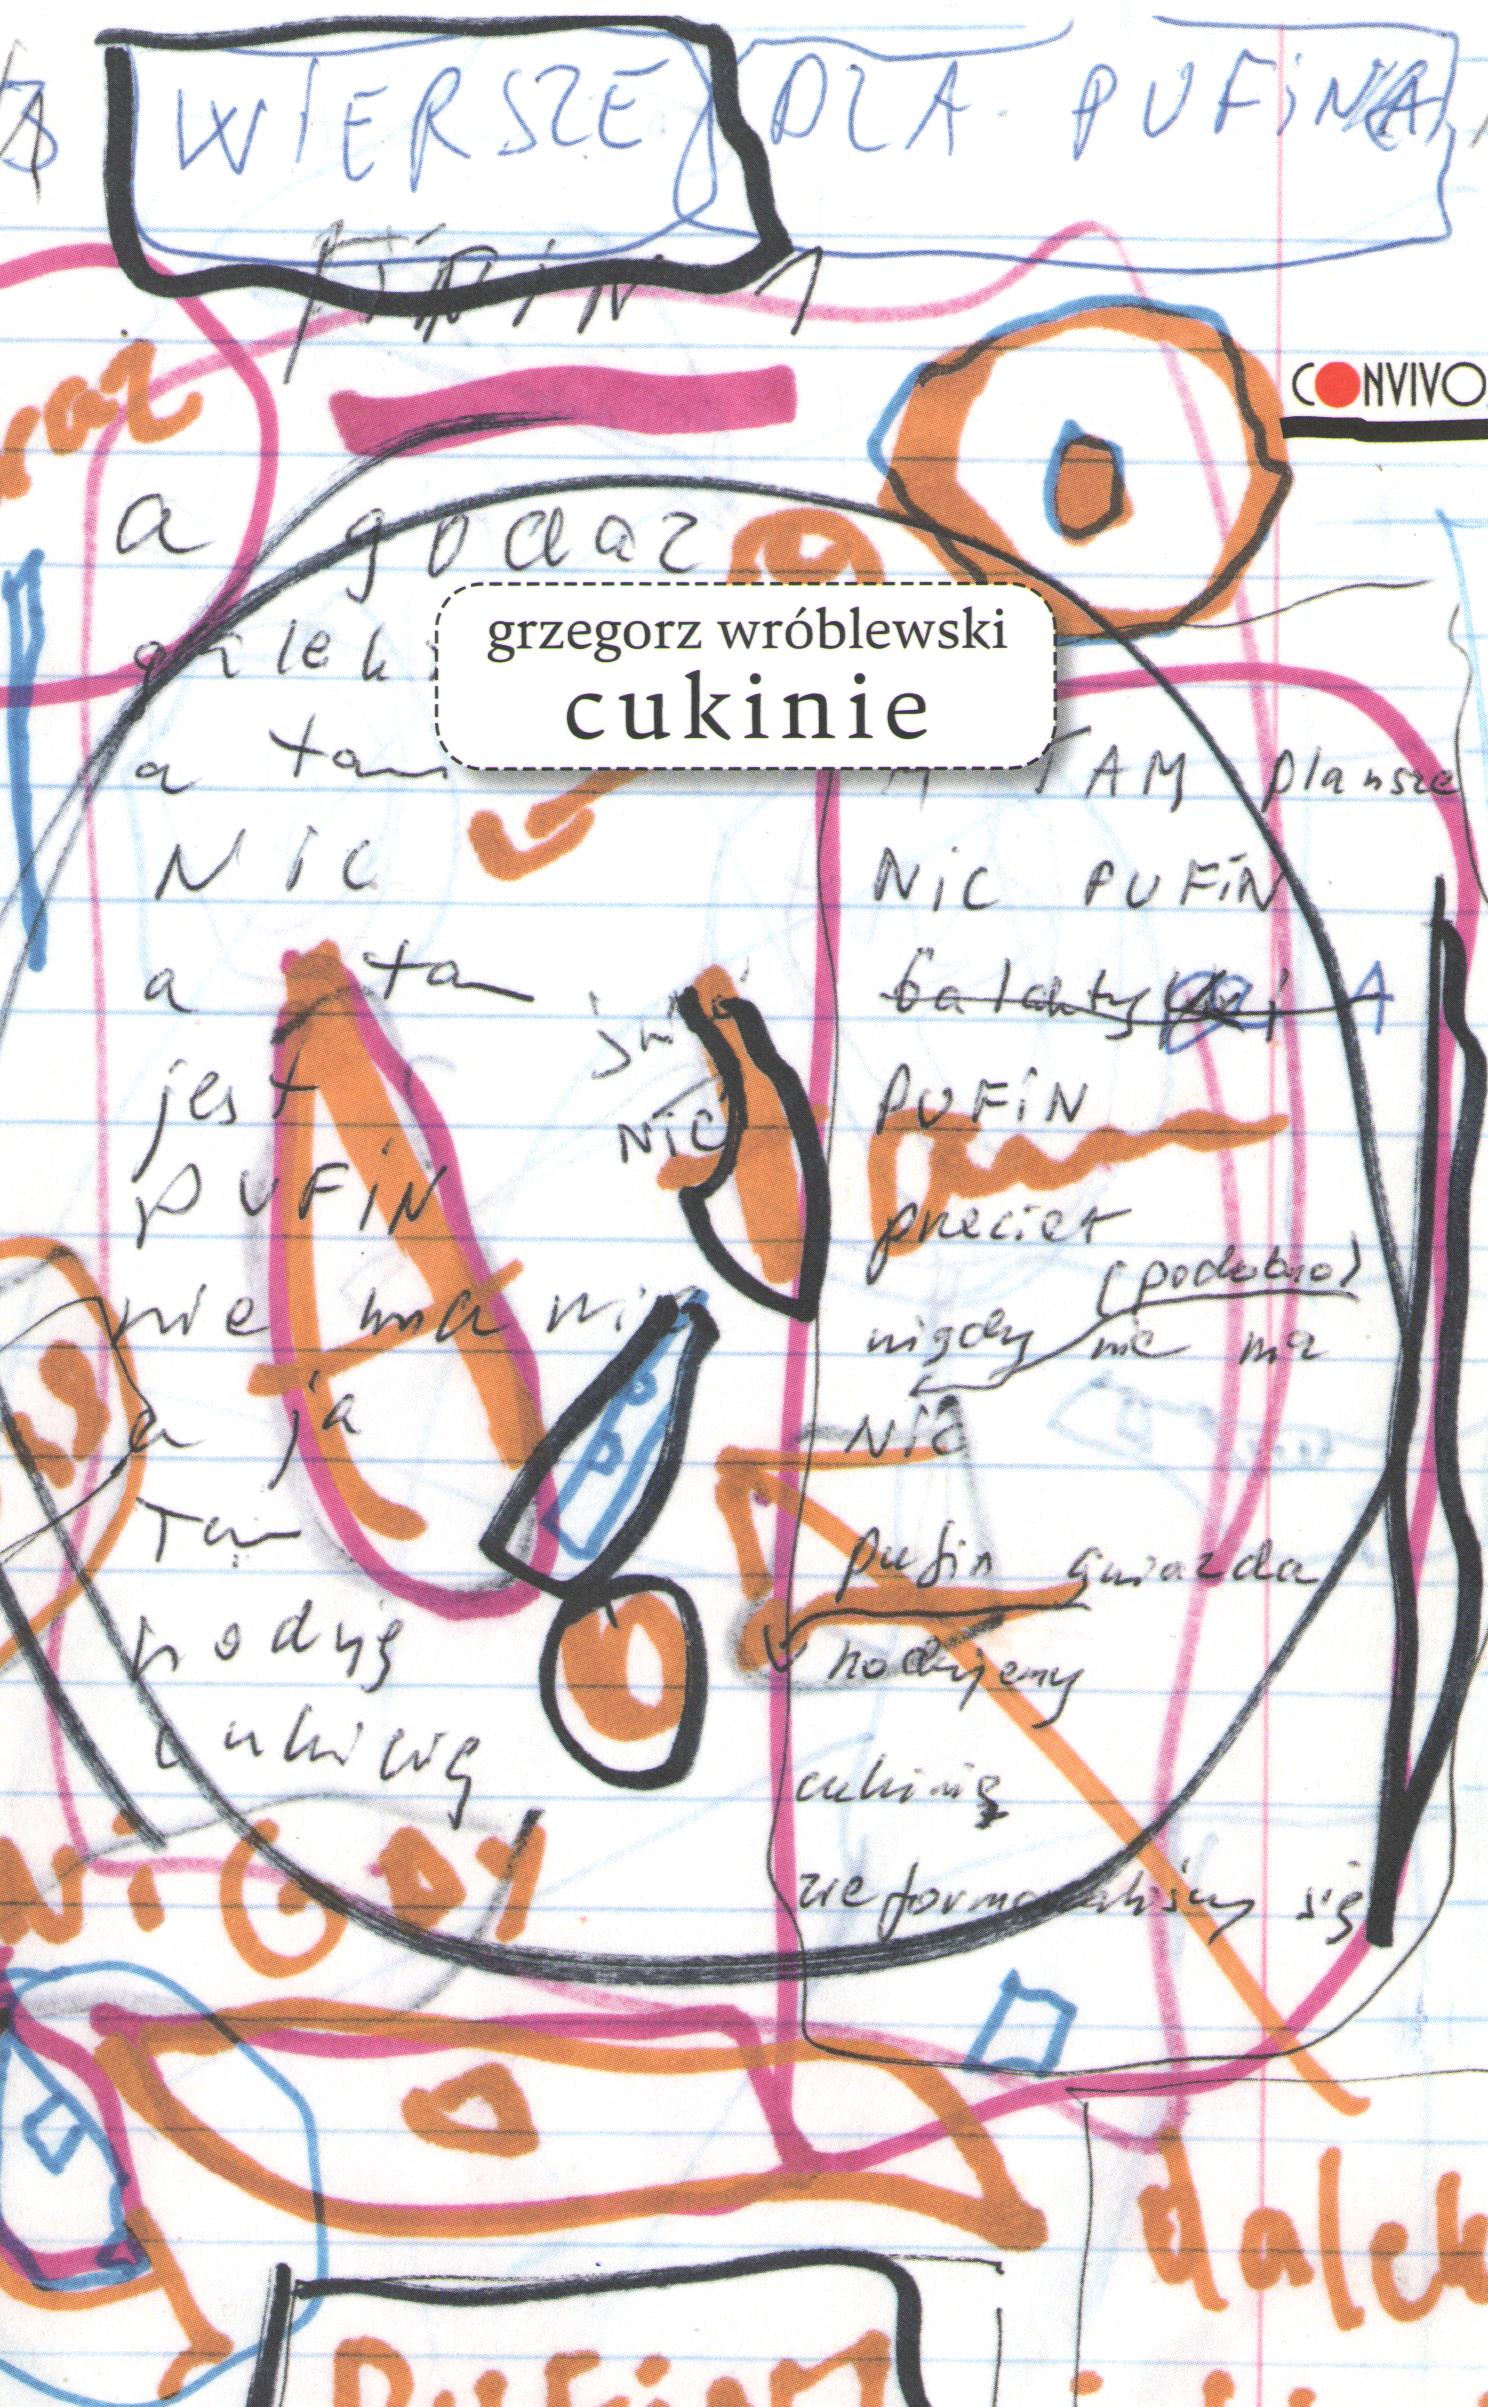 WIERSZE DLA PUFINA
PUFIN 1
CONVIVO
a godaz
grzegorz wróblewski
cukinie
a tam
NIC
a tam
jest
PUFIN
nie ma nic
a ja
Tam
hodują
cukinię
NIC
TAM plansze
NIC PUFIN
Galaktyki A
PUFIN
przecież
(podobno)
nigdy nie ma
NIC
pufin gwiazda
hodujemy
cukinię
zreformowaliśmy się
NIGDY
dalek
PUFiN